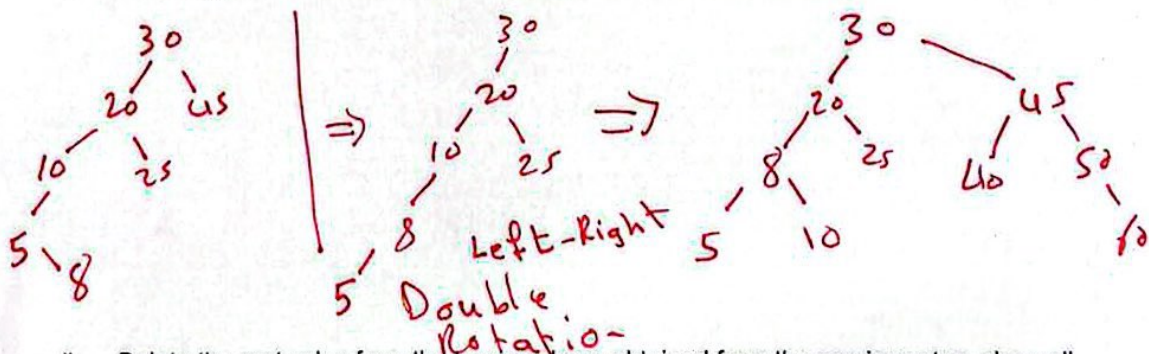 30
20 45
10 25
5 8
⇒
30
20
10 25
8
5
Left-Right
Double
Rotatio-
⇒
30
20 45
8 25 40 50
5 10